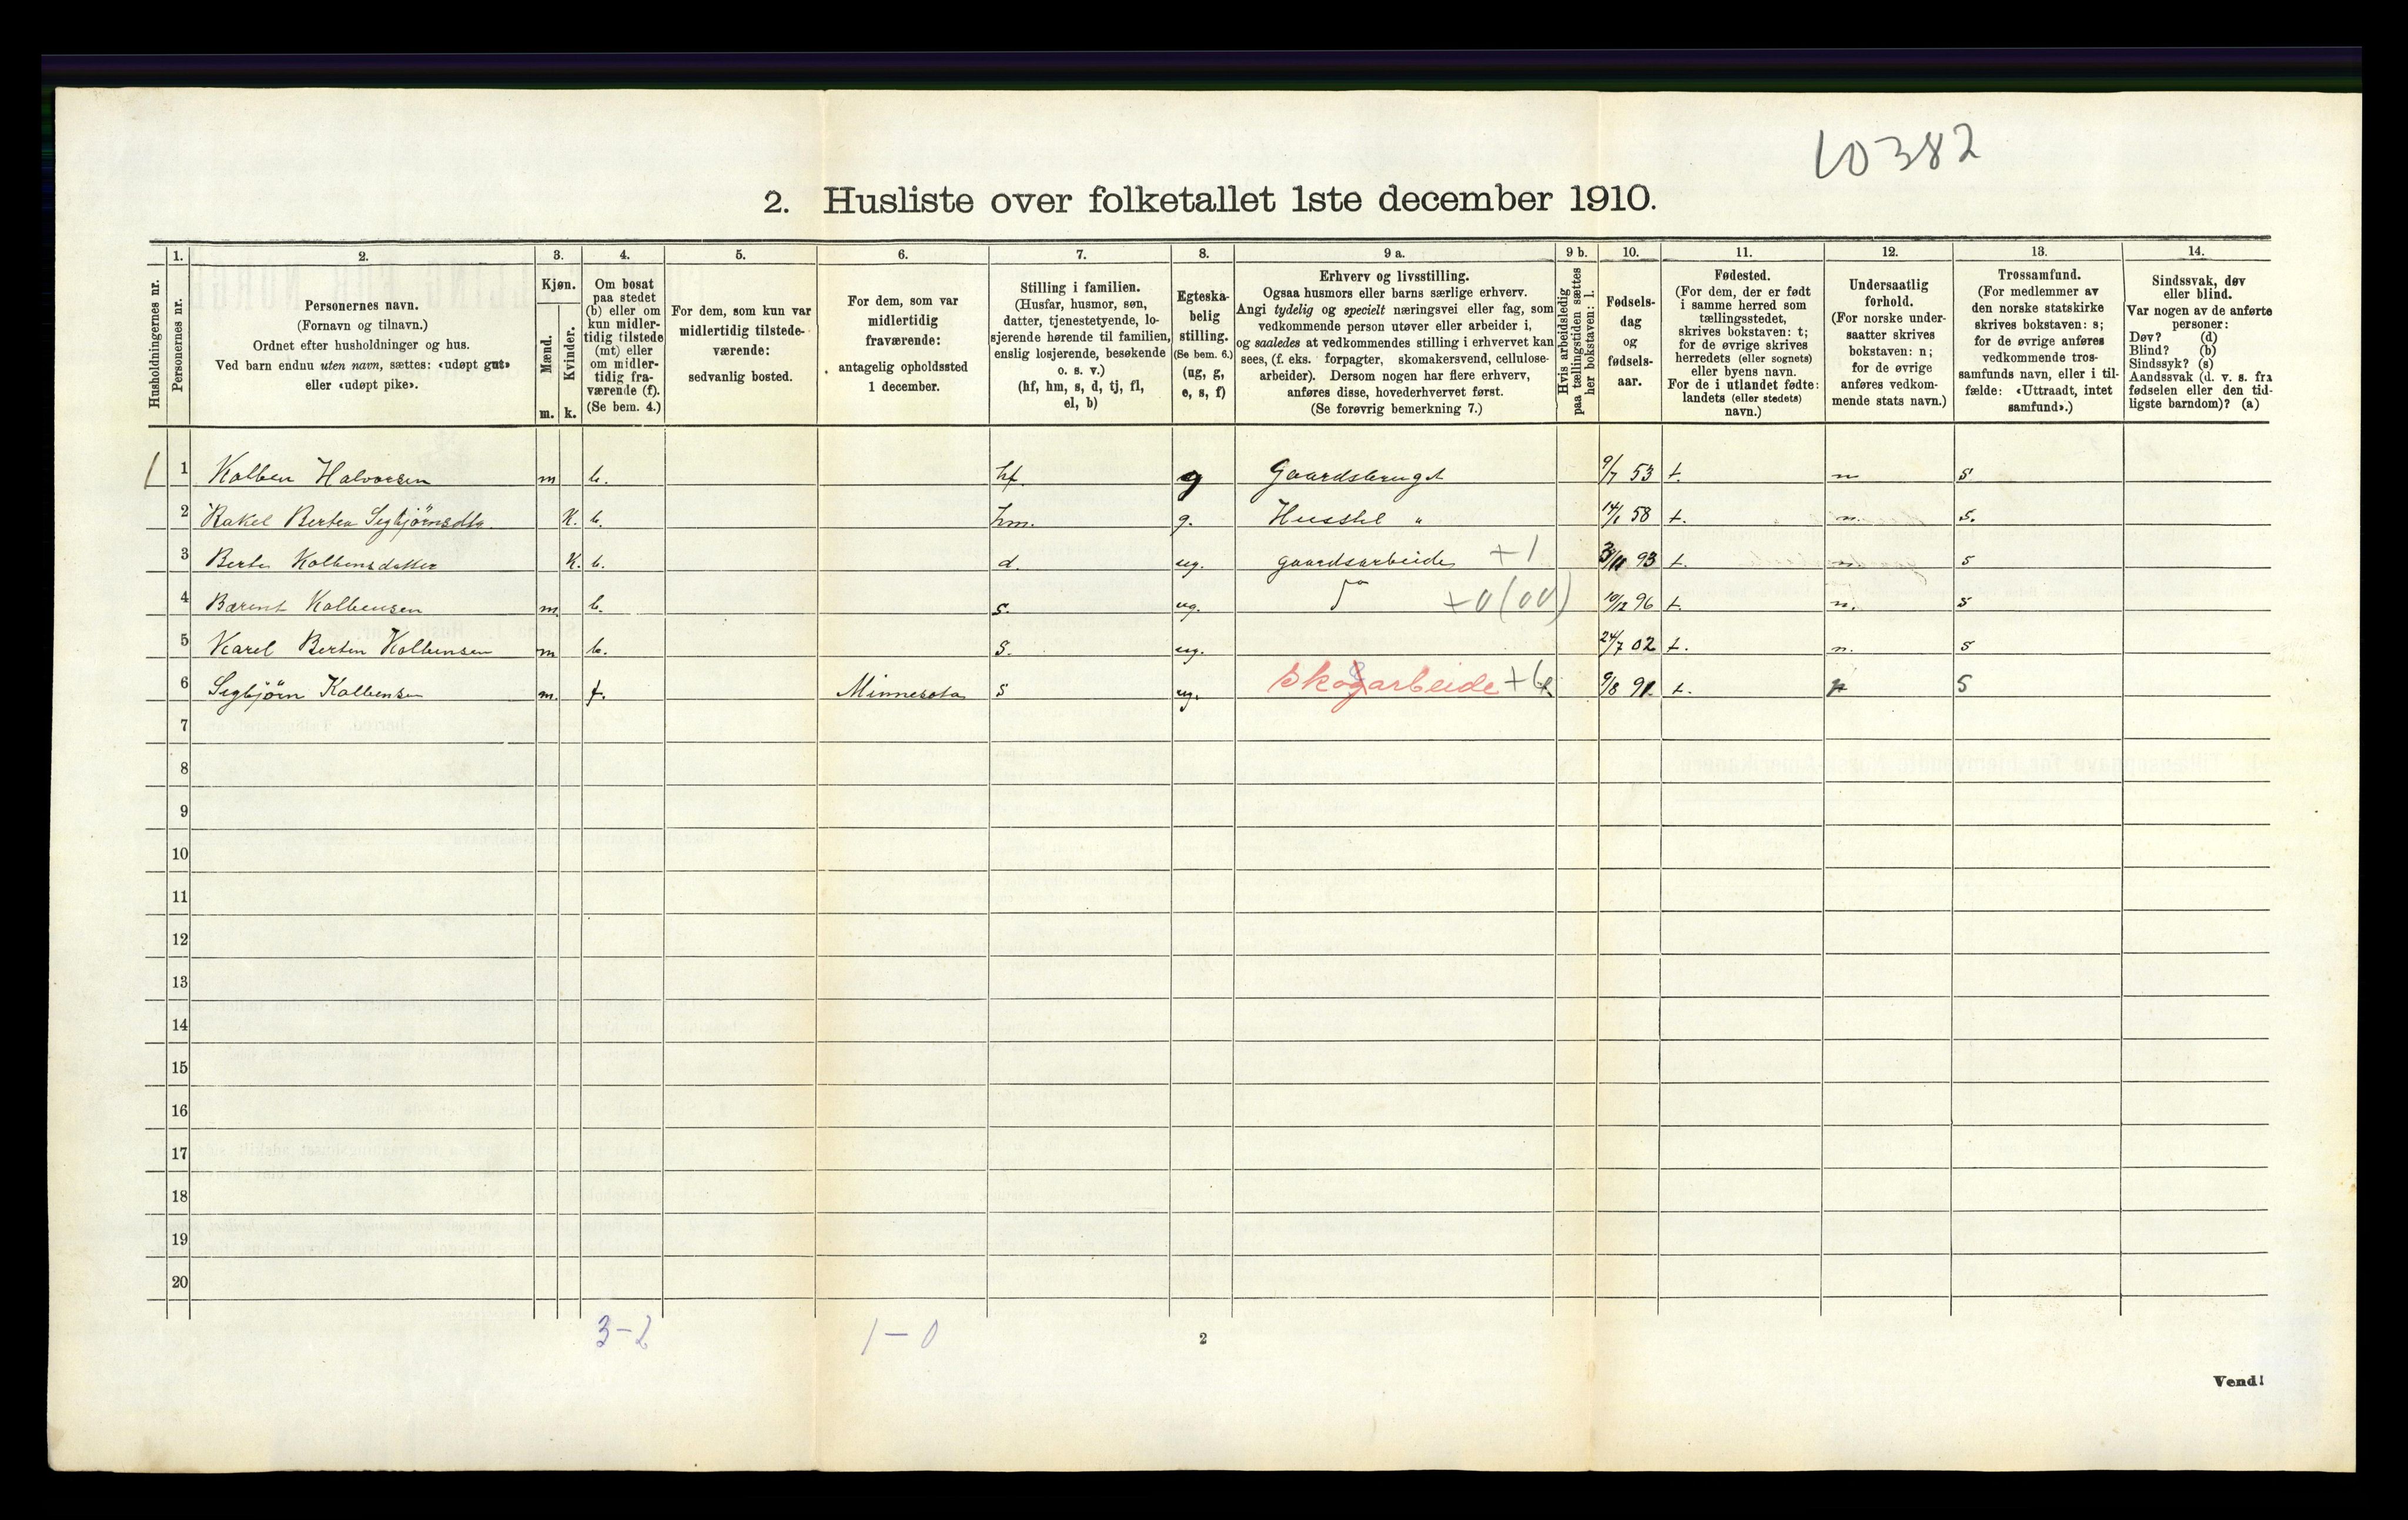 10382
2. Husliste over folketallet 1ste december 1910.
Husholdningernes nr.
1.
Personernes nr.
2.
Personernes navn.
(Fornavn og tilnavn.)
Ordnet efter husholdninger og hus.
Ved barn endnu uten navn, sættes: «udøpt gut»
eller «udøpt pike».
3.
Kjøn.
Mænd.
m.
Kvinder.
k.
4.
Om bosat
paa stedet
(b) eller om
kun midler-
tidig tilstede
(mt) eller
om midler-
tidig fra-
værende (f).
(Se bem. 4.)
5.
For dem, som kun var
midlertidig tilstede-
værende:
sedvanlig bosted.
6.
For dem, som var
midlertidig
fraværende:
antagelig opholdssted
1 december.
7.
Stilling i familien.
(Husfar, husmor, søn,
datter, tjenestetyende, lo-
sjerende hørende til familien,
enslig losjerende, besøkende
o. s. v.)
(hf, hm, s, d, tj, fl,
el, b)
8.
Egteska-
belig
stilling.
(Se bem. 6.)
(ug, g,
e, s, f)
9 a.
Erhverv og livsstilling.
Ogsaa husmors eller barns særlige erhverv.
Angi tydelig og specielt næringsvei eller fag, som
vedkommende person utøver eller arbeider i,
og saaledes at vedkommendes stilling i erhvervet kan
sees, (f. eks. forpagter, skomakersvend, cellulose-
arbeider). Dersom nogen har flere erhverv,
anføres disse, hovederhvervet først.
(Se forøvrig bemerkning 7.)
9 b.
Hvis arbeidsledig
paa tællingstiden sættes
her bokstaven: l.
10.
Fødsels-
dag
og
fødsels-
aar.
11.
Fødested.
(For dem, der er født
i samme herred som
tællingsstedet,
skrives bokstaven: t;
for de øvrige skrives
herredets (eller sognets)
eller byens navn.
For de i utlandet fødte:
landets (eller stedets)
navn.)
12.
Undersaatlig
forhold.
(For norske under-
saatter skrives
bokstaven: n;
for de øvrige
anføres vedkom-
mende stats navn.)
13.
Trossamfund.
(For medlemmer av
den norske statskirke
skrives bokstaven: s;
for de øvrige anføres
vedkommende tros-
samfunds navn, eller i til-
fælde: «Uttraadt, intet
samfund».)
14.
Sindssvak, døv
eller blind.
Var nogen av de anførte
personer:
Døv? (d)
Blind? (b)
Sindssyk? (s)
Aandssvak (d. v. s. fra
fødselen eller den tid-
ligste barndom)? (a)
1 1 Kolben Halvorsen m b. hf. g Gaardsbruget 9/7 53 t. n s
2 Rakel Bertea Segbjörnsdtr. K. b. hm. g. Husstel " 14/1 58 t. n. s.
3 Berte Kolbensdatter K. b. d. ug. gaardsarbeide +1 93 t. n. s
4 Barent Kolbensen m. b. s. ug. +0(00) 10/12 96 t. n. s
5 Karel Berten Kolbensen m b. s. ug. 24/7 02 t. n. s
6 Segbjörn Kolbensen m. f. Minnesota s ug. Skogarbeide 9/8 91 t. n s
7
8
9
10
11
12
13
14
15
16
17
18
19
20
3-2 1-0
2
Vend!